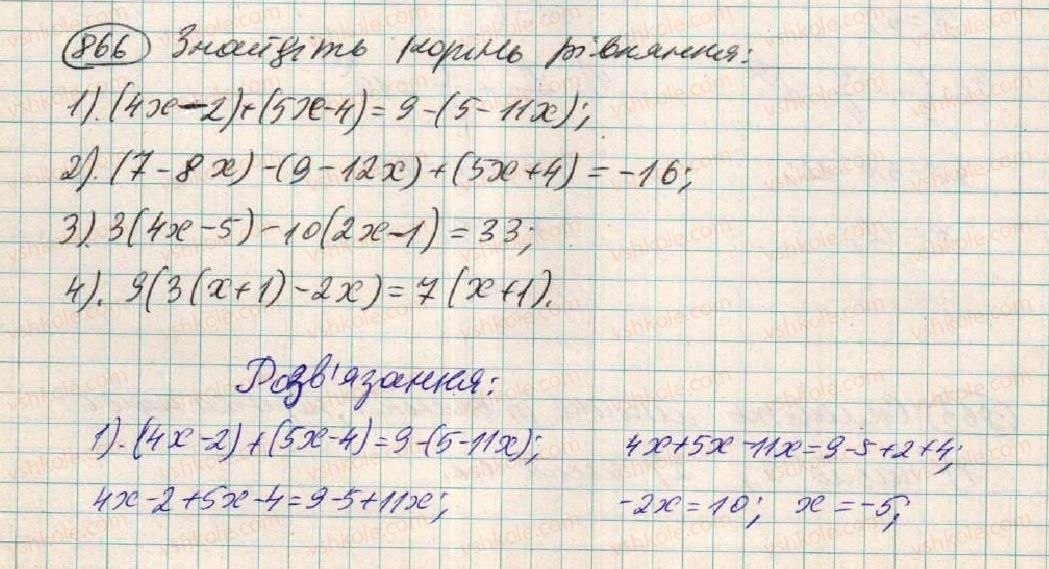 866 Знайдіть корінь рівняння:
1). (4x-2)+(5x-4)=9-(5-11x);
2). (7-8x)-(9-12x)+(5x+4)=-16;
3). 3(4x-5)-10(2x-1)=33;
4). 9(3(x+1)-2x)=7(x+1).
Розв'язання:
1). (4x-2)+(5x-4)=9-(5-11x);
4x-2+5x-4=9-5+11x;
4x+5x-11x=9-5+2+4;
-2x=10; x=-5;